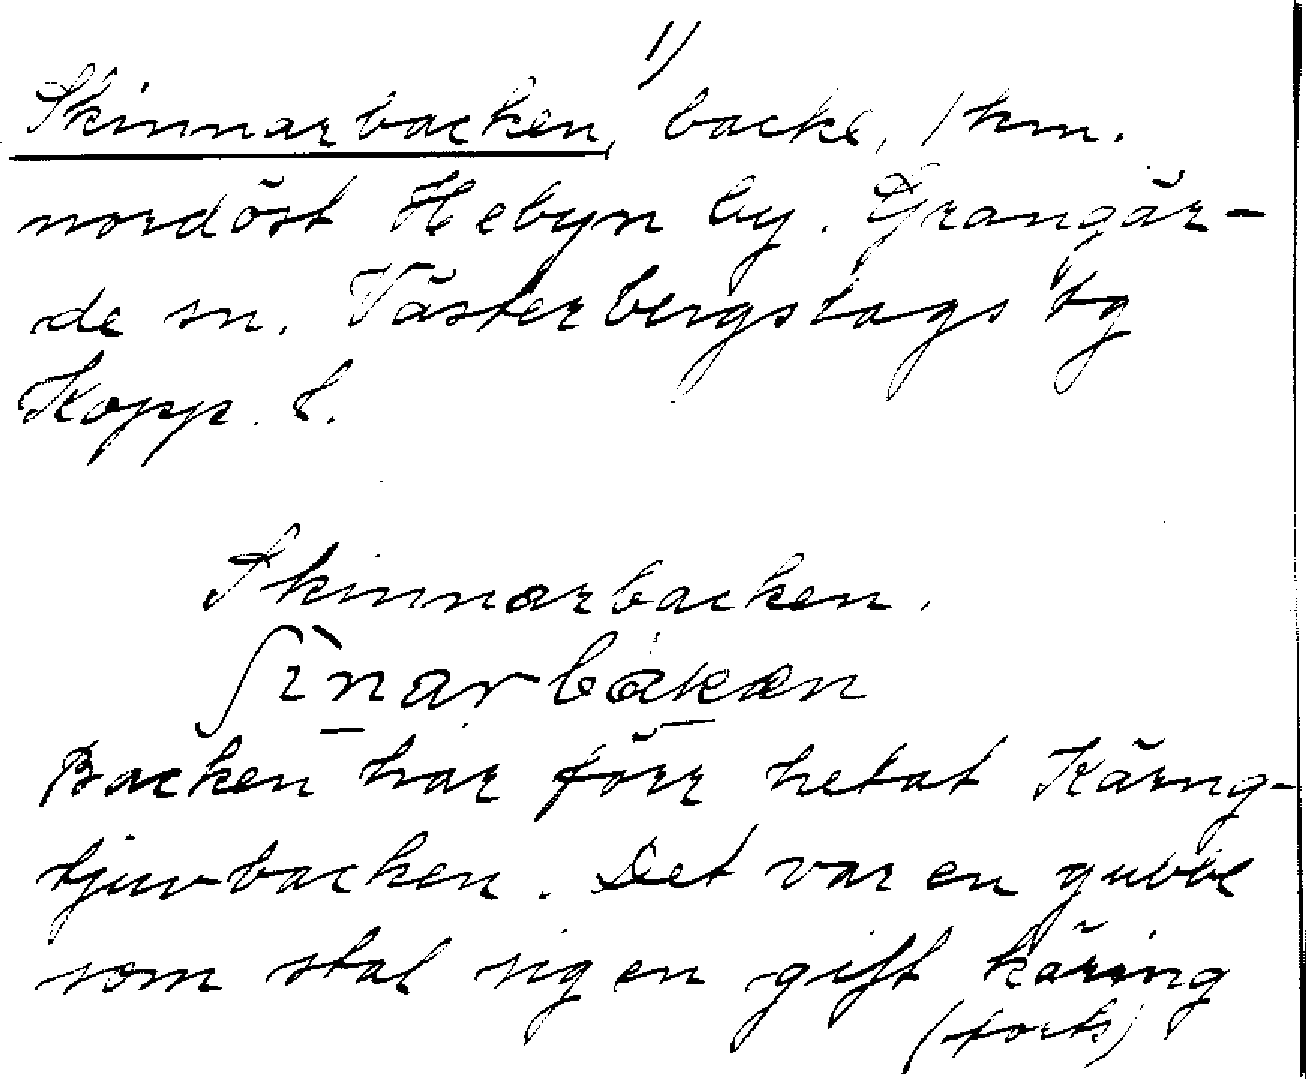 1)
Skinnarbacken, backe, 1 km.
nordöst Hebyn by. Grangär-
de sn. Västerbergslags tg
Kopp. l.
Skinnarbacken.
ʃìnarbakæn
Backen har förr hetat Käring-
tjuvbacken. Det var en gubbe
som stal sig en gift käring
(forts)